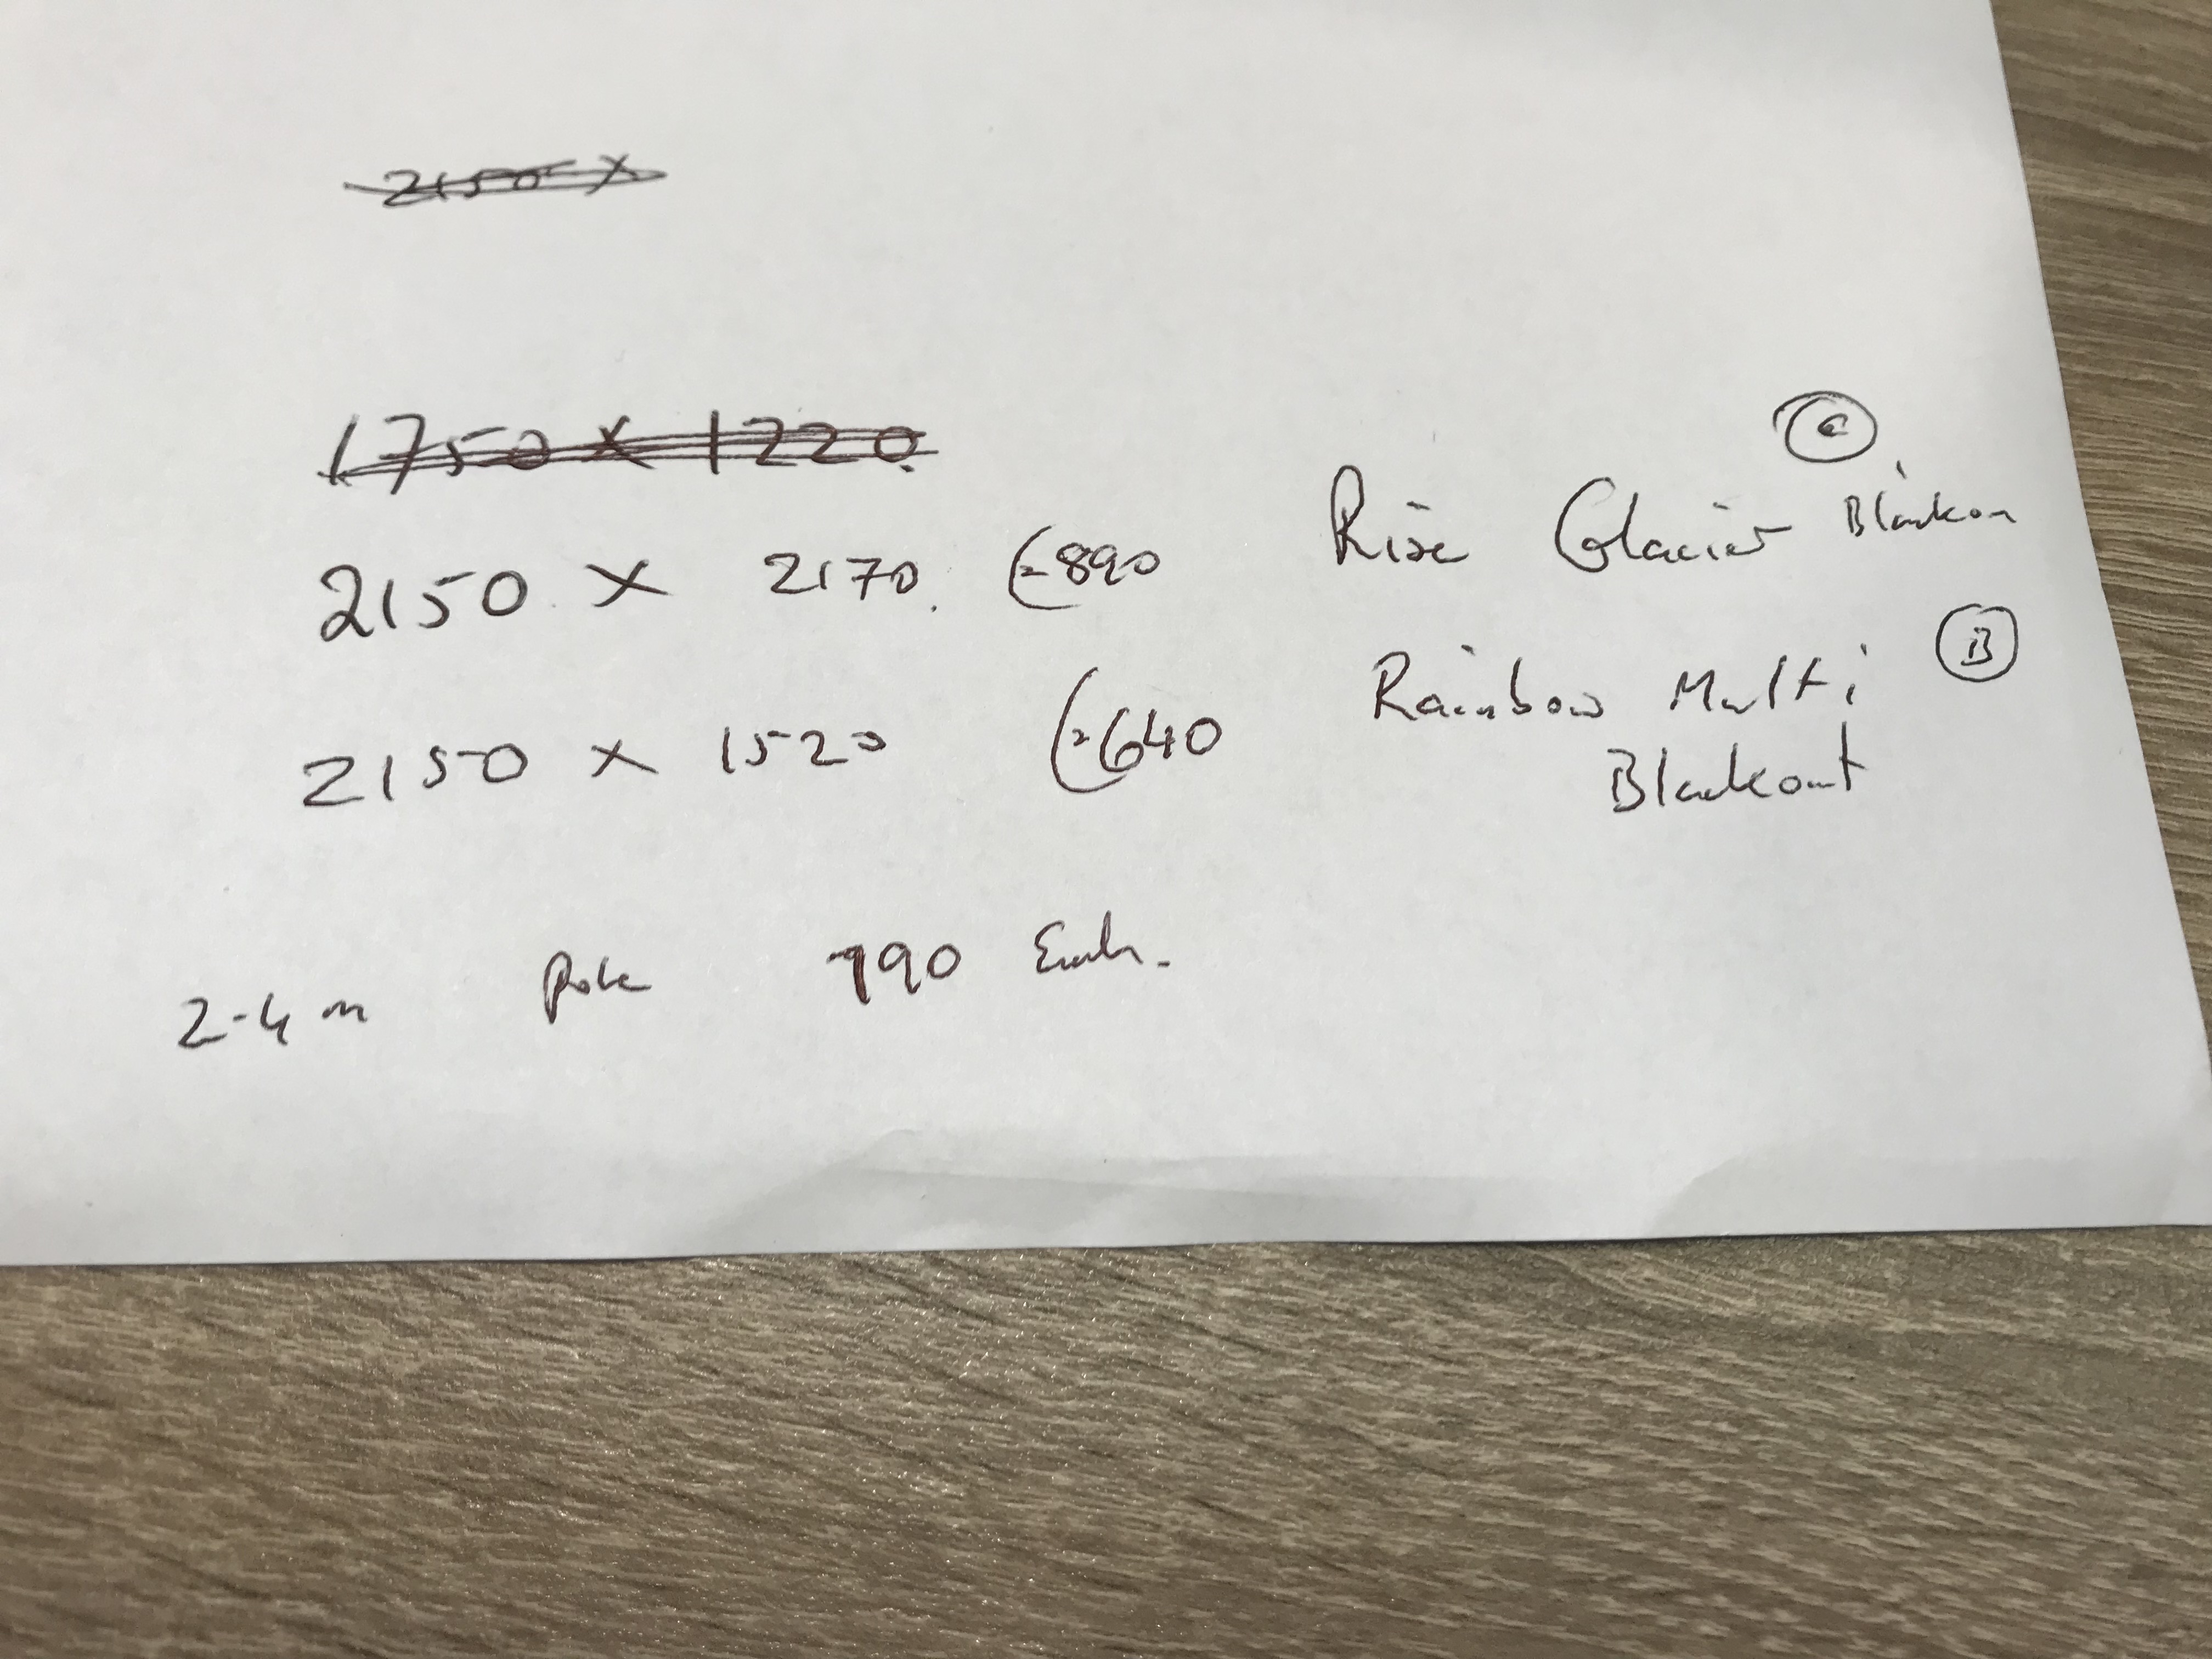 2150 X
1750 X 1220
C
2150 X 2170. (=890 Rise Glacier Blackou
2150 X 1520 (=640 Rainbow Multi B
Blackout
2-4m Pole 190 Each.